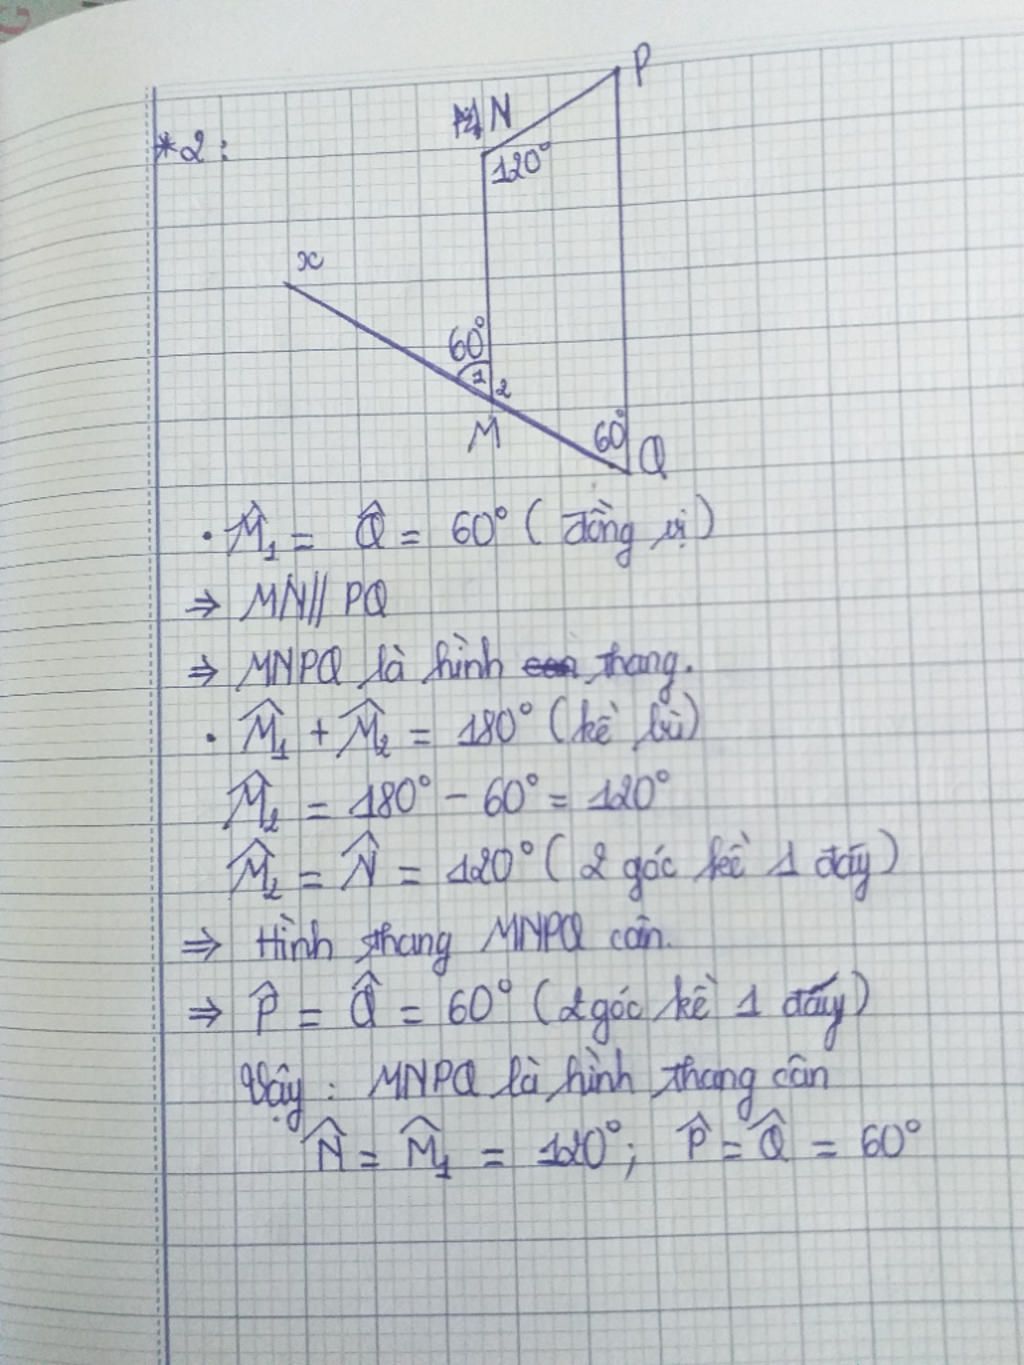 *2:
N
P
120°
x
60°
1
2
M
60°
Q
. M̂₁ = Q̂ = 60° ( đồng vị )
⇒ MN // PQ
⇒ MNPQ là hình thang.
. M̂₁ + M̂₂ = 180° (kề bù)
M̂₂ = 180° - 60° = 120°
M̂₂ = N̂ = 120° ( 2 góc kề 1 đáy)
⇒ Hình thang MNPQ cân.
⇒ P̂ = Q̂ = 60° ( 2 góc kề 1 đấy)
Vậy : MNPQ là hình thang cân
N̂ = M̂₁ = 120° ; P̂ = Q̂ = 60°